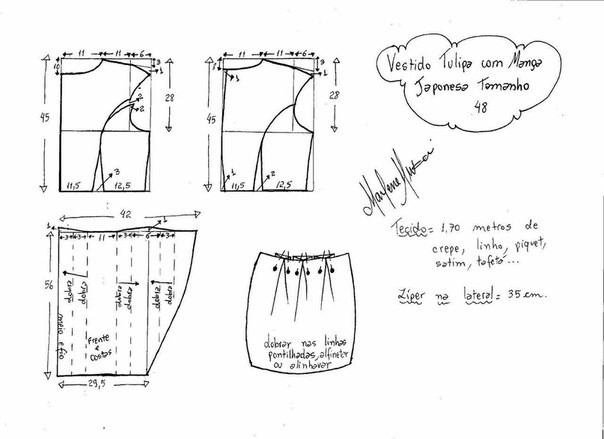 Vestido Tulipa com Manga
Japonesa Tamanho
48
11 11 6
10
3
1
2
2
45
28
3
11,5 12,5
11 11 6
3
1
45
28
1
2
11,5 12,5
Marlene Mukai
Tecido = 1,70 metros de
crepe, linho, piquet,
satim, tafetá...
Zíper na lateral = 35 cm.
42
1
1
3 3 11 3 6 3
56
dobra
dobra
dobra
dobra
dobra
dobra
meio e fio
Frente
e
costas
29,5
dobrar nas linhas
pontilhadas, alfinetar
ou alinhavar